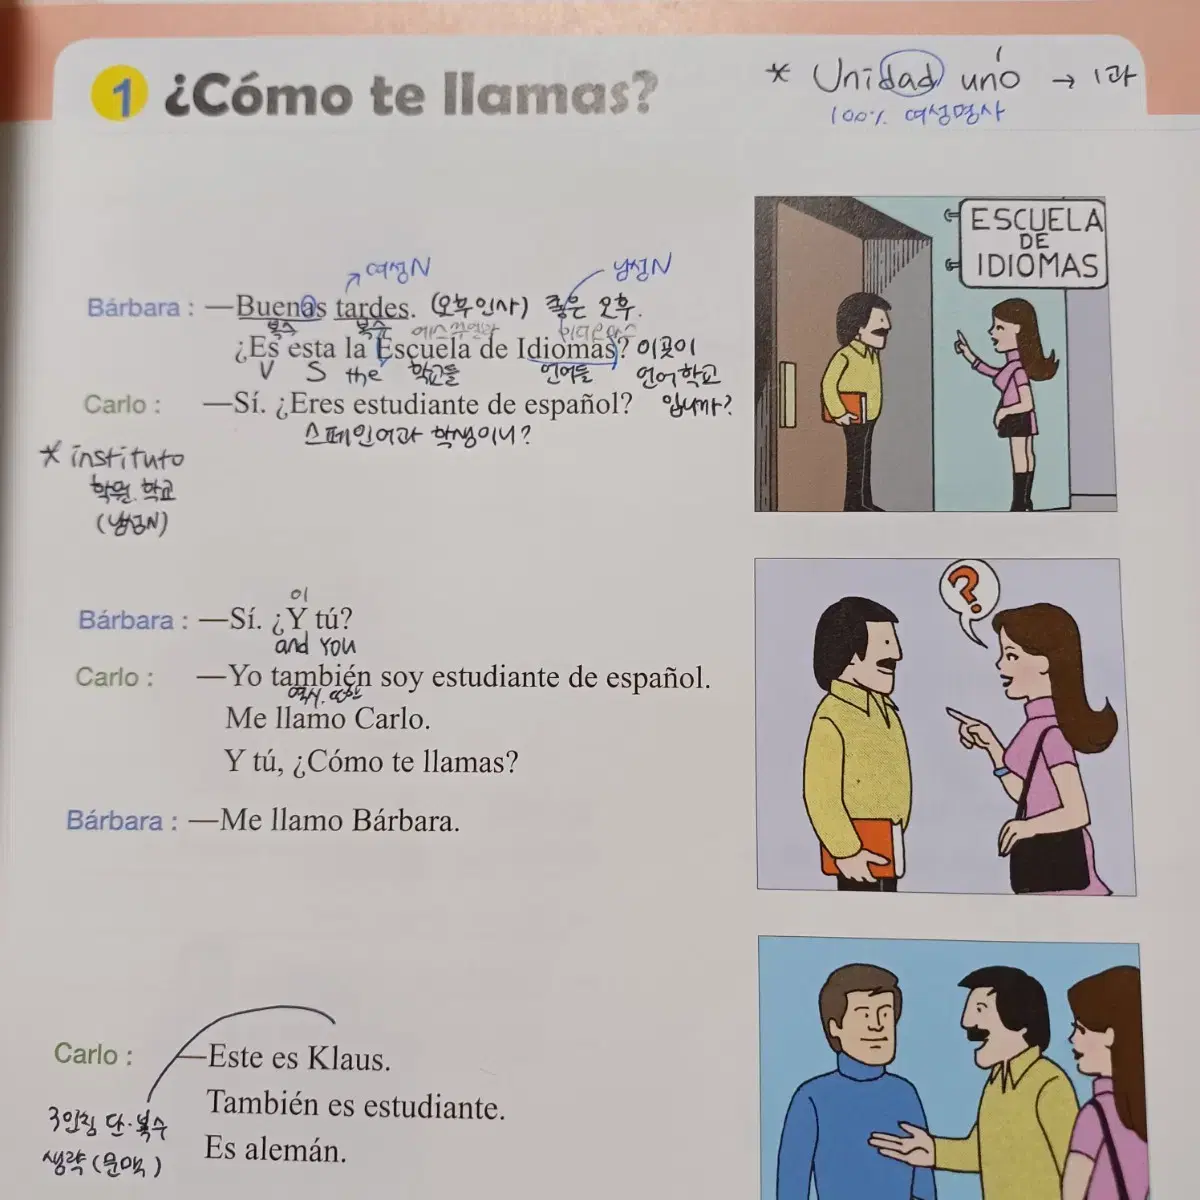 1 ¿Cómo te llamas?
* Unidad uno → 1과
100% 여성명사
ESCUELA
DE
IDIOMAS
여성N
남성N
Bárbara : —Buenas tardes. (오후인사) 좋은 오후.
복수 복수
¿Es esta la Escuela de Idiomas? 이곳이
V S the 학교들 언어들 언어학교
Carlo : —Sí. ¿Eres estudiante de español? 입니까?
스페인어과 학생이니?
* instituto
학원. 학교
(남성N)
이
Bárbara : —Sí. ¿Y tú?
and you
Carlo : —Yo también soy estudiante de español.
역시, 또한
Me llamo Carlo.
Y tú, ¿Cómo te llamas?
Bárbara : —Me llamo Bárbara.
?
Carlo : —Este es Klaus.
También es estudiante.
Es alemán.
3인칭 단·복수
생략 (문맥)